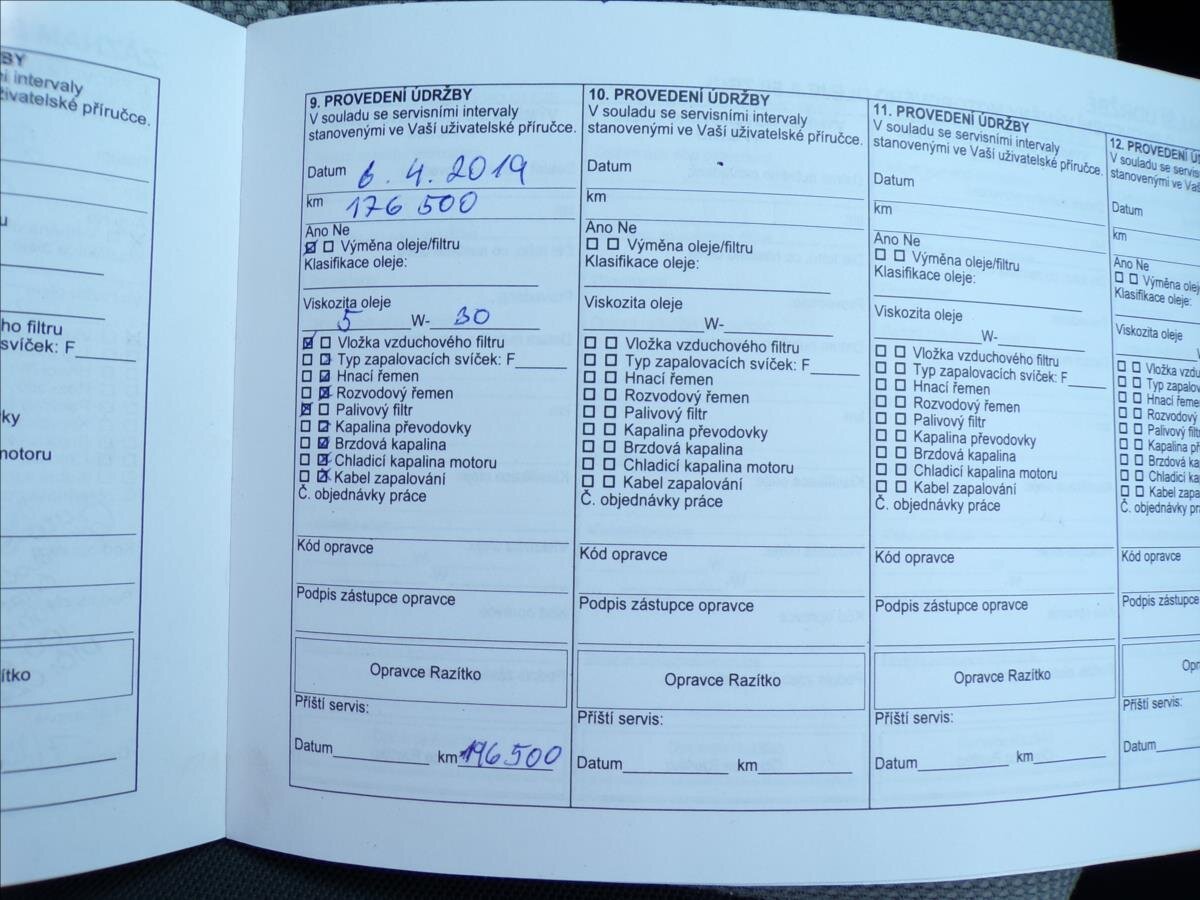 BY
í intervaly
živatelské příručce.
u
ho filtru
svíček: F
ky
motoru
ítko
9. PROVEDENÍ ÚDRŽBY
V souladu se servisními intervaly
stanovenými ve Vaší uživatelské příručce.
Datum 6. 4. 2019
km 176 500
Ano Ne
Výměna oleje/filtru
Klasifikace oleje:
Viskozita oleje
5 W- 30
Vložka vzduchového filtru
Typ zapalovacích svíček: F
Hnací řemen
Rozvodový řemen
Palivový filtr
Kapalina převodovky
Brzdová kapalina
Chladicí kapalina motoru
Kabel zapalování
Č. objednávky práce
Kód opravce
Podpis zástupce opravce
Opravce Razítko
Příští servis:
Datum km 196500
10. PROVEDENÍ ÚDRŽBY
V souladu se servisními intervaly
stanovenými ve Vaší uživatelské příručce.
Datum
km
Ano Ne
Výměna oleje/filtru
Klasifikace oleje:
Viskozita oleje
W-
Vložka vzduchového filtru
Typ zapalovacích svíček: F
Hnací řemen
Rozvodový řemen
Palivový filtr
Kapalina převodovky
Brzdová kapalina
Chladicí kapalina motoru
Kabel zapalování
Č. objednávky práce
Kód opravce
Podpis zástupce opravce
Opravce Razítko
Příští servis:
Datum km
11. PROVEDENÍ ÚDRŽBY
V souladu se servisními intervaly
stanovenými ve Vaší uživatelské příručce.
Datum
km
Ano Ne
Výměna oleje/filtru
Klasifikace oleje:
Viskozita oleje
W-
Vložka vzduchového filtru
Typ zapalovacích svíček: F
Hnací řemen
Rozvodový řemen
Palivový filtr
Kapalina převodovky
Brzdová kapalina
Chladicí kapalina motoru
Kabel zapalování
Č. objednávky práce
Kód opravce
Podpis zástupce opravce
Opravce Razítko
Příští servis:
Datum km
12. PROVEDENÍ Ú
V souladu se servis
stanovenými ve Vaš
Datum
km
Ano Ne
Výměna oleje
Klasifikace oleje:
Viskozita oleje
Vložka vzdu
Typ zapalov
Hnací řeme
Rozvodový
Palivový filt
Kapalina př
Brzdová ka
Chladicí ka
Kabel zapa
Č. objednávky pr
Kód opravce
Podpis zástupce
Opr
Příští servis:
Datum